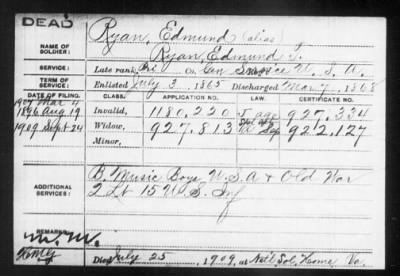 DEAD
NAME OF SOLDIER: Ryan, Edmund (alias)
Ryan, Edmund J.
SERVICE: Late rank, Pvt Co. Gen Service U.S.A.
TERM OF SERVICE: Enlisted July 3, 1865 Discharged Mar 7, 1868
DATE OF FILING. CLASS. APPLICATION NO. CERTIFICATE NO.
1907 Mar 4
1896 Aug 19 Invalid, 1180,220 927,334
1909 Sept 24 Widow, 927,813 922,127
Minor,
ADDITIONAL SERVICES: B. Music Boys U.S.A + Old War
2 Lt 15 U.S. Inf
REMARKS:
Died July 25, 1909, at Natl. Sol. Home Va.